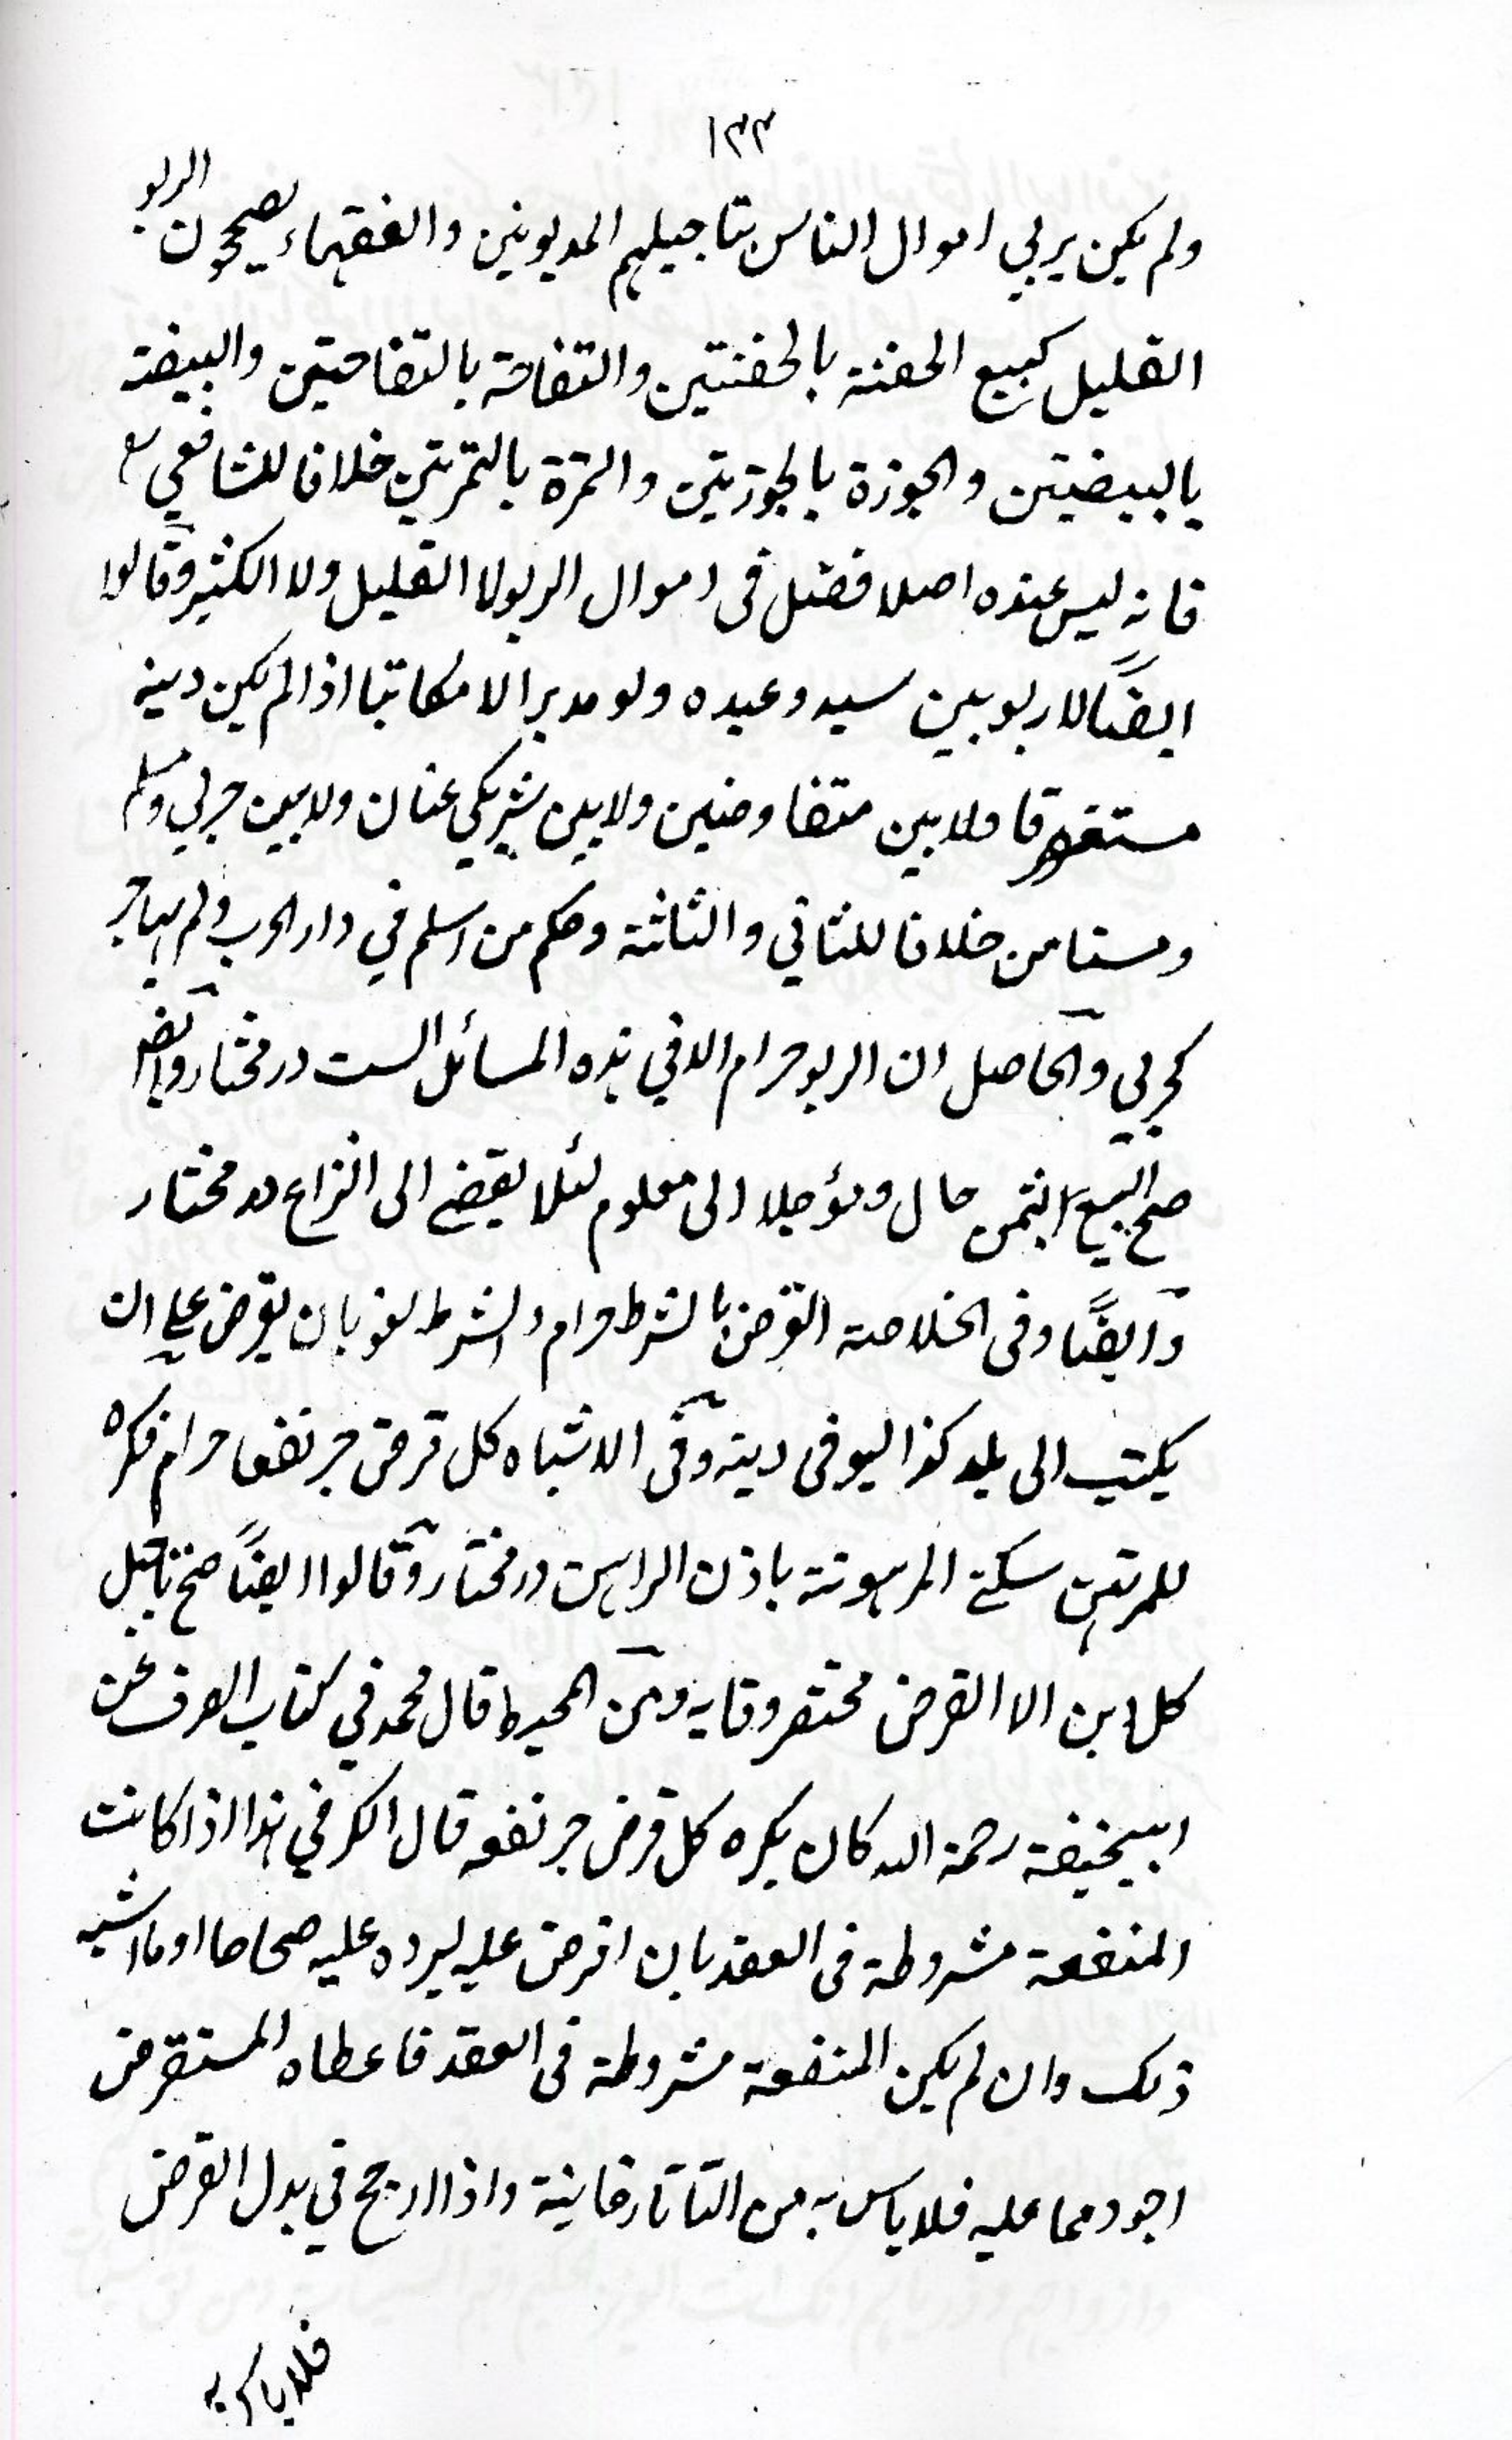 ۱۳۳
ولم يكن يربي اموال الناس بتاجيلهم المديونين والفقهاء يصححون الربو
القليل كبيع الحفنة بالحفنتين والتفاحة بالتفاحتين والبيضة
بالبيضتين والجوزة بالجوزتين والتمرة بالتمرتين خلافا للشافعي رح
فانه ليس عنده اصلا فضل فى اموال الربو لا القليل ولا الكثير وقالوا
ايضًا لا ربو بين سيد وعبده ولو مدبرا لا مكاتبا اذا لم يكن دينه
مستغرقا ولا بين متفاوضين ولا بين شريكي عنان ولا بين حربي ومسلم
ومستامن خلافا للثاني والثلثة وحكم من اسلم في دار الحرب ولم يهاجر
كحربي والحاصل ان الربو حرام الا في هذه المسائل الست در مختار وايضا
صح البيع بثمن حال ومؤجلا الى معلوم لئلا يفضے الى النزاع در مختار
وايضًا وفى الخلاصة القرض بالشرط حرام والشرط لغو بان يقرض علے ان
يكتب الى بلد كذا ليوفى دينه وفى الاشباه كل قرض جر نفعا حرام فكره
للمرتهن سكنے المرهونة باذن الراهن در مختار وقالوا ايضًا صح تاجيل
كل دين الا القرض مختصر وقايه ومن المحيط قال محمد في كتاب الصرف عن
ابيحنيفة رحمة الله كان يكره كل قرض جر نفعه قال الكرخي هذا اذا كانت
المنفعة مشروطة فى العقد بان اقرض عليه ليرده عليه صحاحا او ما اشبه
ذلك وان لم يكن المنفعة مشروطة فى العقد فاعطاه المستقرض
اجود مما عليه فلا باس به من التاتارخانية واذا ارجح في بدل القرض
فلا باس به